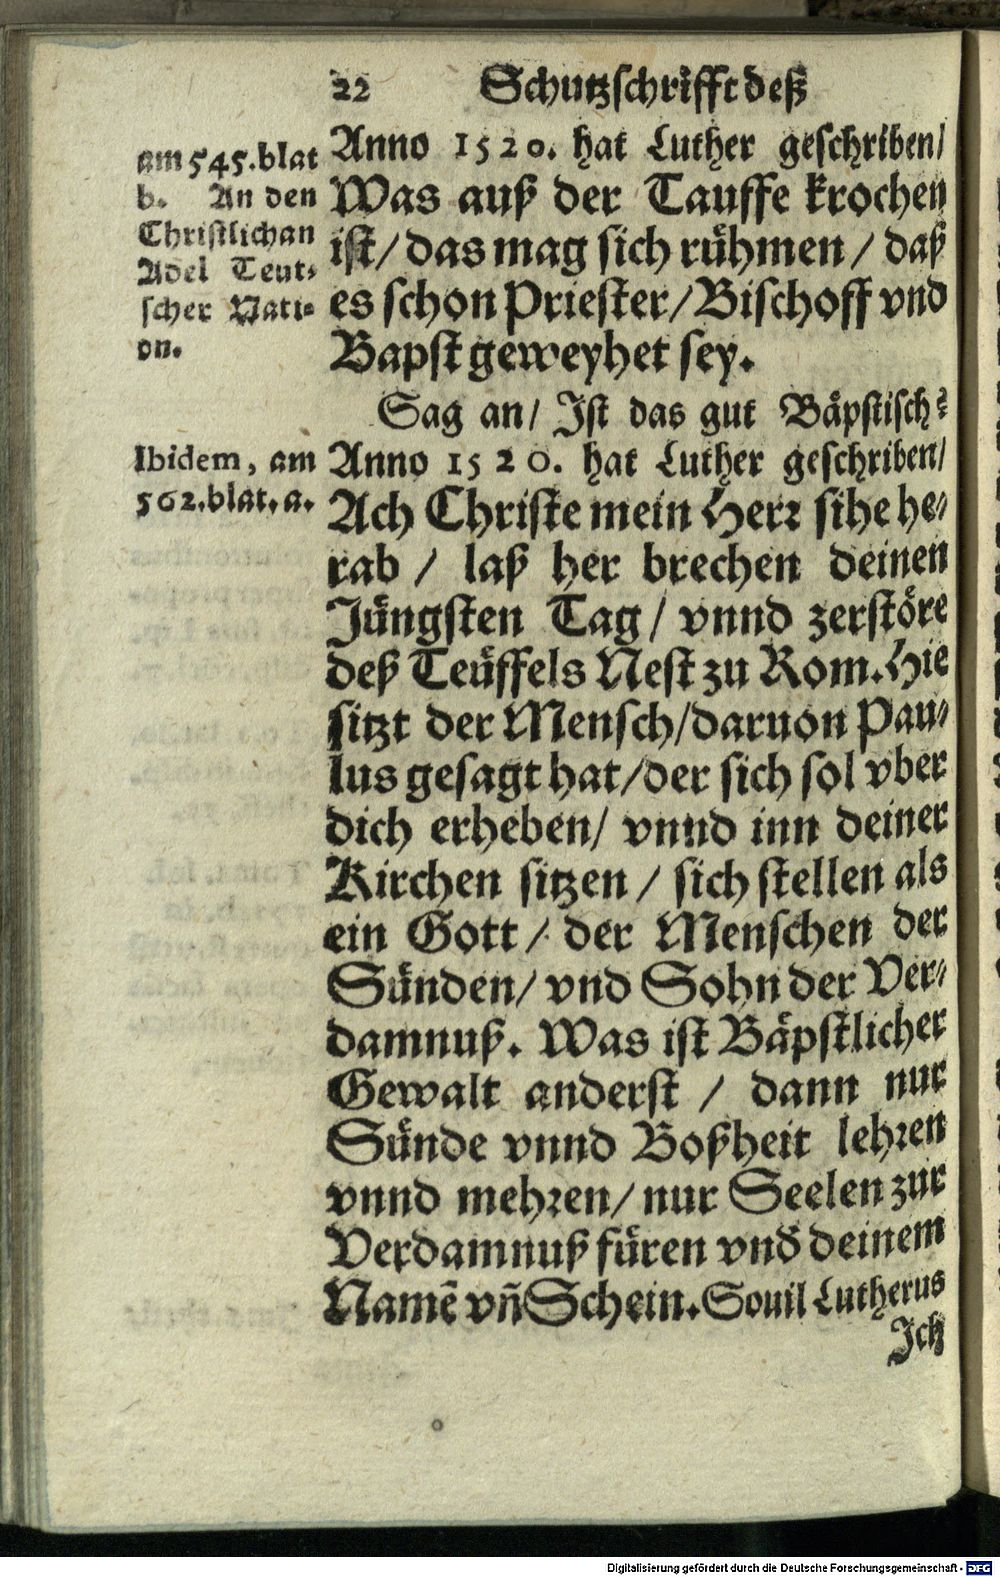 22 Schutzschrifft deß
am 545. blat
b. An den
Christlichan
Adel Teut-
scher Nati-
on.
Anno 1520. hat Luther geschriben/
Was auß der Tauffe krochen
ist/ das mag sich rühmen/ daß
es schon Priester/ Bischoff vnd
Bapst geweyhet sey.
Sag an/ Ist das gut Bäpstisch?
Ibidem, am
562. blat. a.
Anno 1520. hat Luther geschriben/
Ach Christe mein Herr sihe he-
rab/ laß her brechen deinen
Jüngsten Tag/ vnnd zerstöre
deß Teüffels Nest zu Rom. Hie
sitzt der Mensch/ daruon Pau-
lus gesagt hat/ der sich sol vber
dich erheben/ vnnd inn deiner
Kirchen sitzen/ sich stellen als
ein Gott/ der Menschen der
Sünden/ vnd Sohn der Ver-
damnuß. Was ist Bäpstlicher
Gewalt anderst/ dann nur
Sünde vnnd Boßheit lehren
vnnd mehren/ nur Seelen zur
Verdamnuß füren vnd deinem
Namẽ vñ Schein. Souil Lutherus
Ich
Digitalisierung gefördert durch die Deutsche Forschungsgemeinschaft - DFG